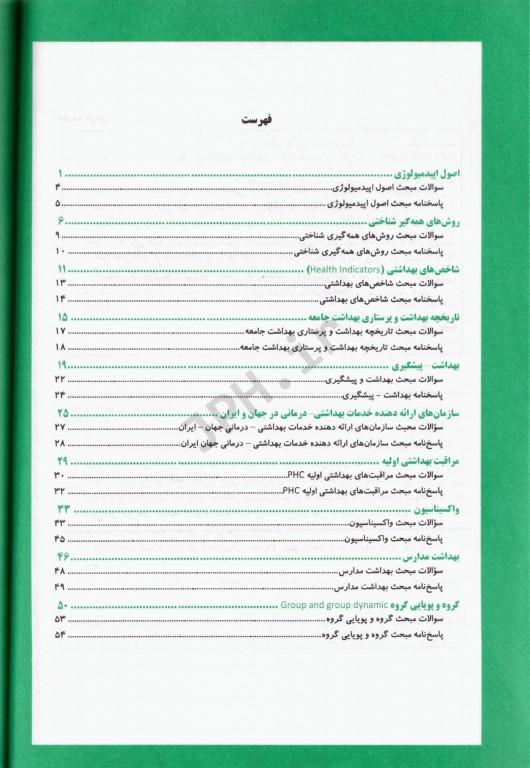 فهرست
اصول اپیدمیولوژی ........ ۱
سوالات مبحث اصول اپیدمیولوژی ........ ۴
پاسخنامه مبحث اصول اپیدمیولوژی ........ ۵
روش‌های همه‌گیر شناختی ........ ۶
سوالات مبحث روش‌های همه‌گیری شناختی ........ ۹
پاسخنامه مبحث روش‌های همه‌گیری شناختی ........ ۱۰
شاخص‌های بهداشتی (Health Indicators) ........ ۱۱
سوالات مبحث شاخص‌های بهداشتی ........ ۱۳
پاسخنامه مبحث شاخص‌های بهداشتی ........ ۱۴
تاریخچه بهداشت و پرستاری بهداشت جامعه ........ ۱۵
سوالات مبحث تاریخچه بهداشت و پرستاری بهداشت جامعه ........ ۱۷
پاسخنامه مبحث تاریخچه بهداشت و پرستاری بهداشت جامعه ........ ۱۸
بهداشت – پیشگیری ........ ۱۹
سوالات مبحث بهداشت و پیشگیری ........ ۲۲
پاسخنامه بهداشت – پیشگیری ........ ۲۴
سازمان‌های ارائه دهنده خدمات بهداشتی– درمانی در جهان و ایران ........ ۲۵
سوالات محبث سازمان‌های ارائه دهنده خدمات بهداشتی – درمانی جهان – ایران ........ ۲۷
پاسخ‌نامه مبحث سازمان‌های ارائه دهنده خدمات بهداشتی – درمانی جهان ایران ........ ۲۸
مراقبت بهداشتی اولیه ........ ۲۹
سؤالات مبحث مراقبت‌های بهداشتی اولیه PHC ........ ۳۰
پاسخ‌نامه مبحث مراقبت‌های بهداشتی اولیه PHC ........ ۳۲
واکسیناسیون ........ ۳۳
سؤالات مبحث واکسیناسیون ........ ۴۳
پاسخ‌نامه مبحث واکسیناسیون ........ ۴۵
بهداشت مدارس ........ ۴۶
سؤالات مبحث بهداشت مدارس ........ ۴۸
پاسخ‌نامه مبحث بهداشت مدارس ........ ۴۹
گروه و پویایی گروه Group and group dynamic ........ ۵۰
سوالات مبحث گروه و پویایی گروه ........ ۵۳
پاسخ‌نامه مبحث گروه و پویایی گروه ........ ۵۴
JPH.ir